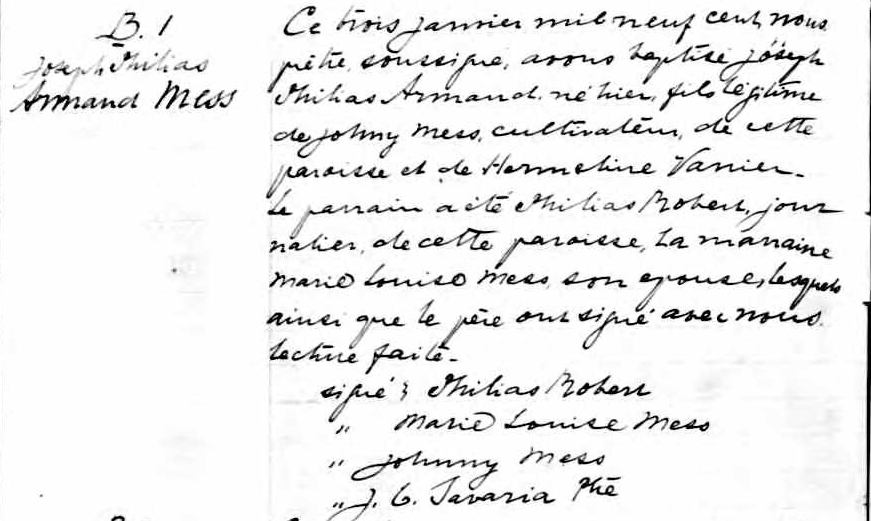 B. 1
Joseph Philias
Armand Mess
Ce trois janvier mil neuf cent, nous
prêtre, soussigné, avons baptisé Joseph
Philias Armand. né hier, fils légitime
de Johny Mess, cultivateur, de cette
paroisse et de Hermeline Vanier.
Le parrain a été Philias Robert, jour
nalier, de cette paroisse, La marraine
Marie Louise Mess, son epouse, lesquels
ainsi que le père ont signé avec nous.
Lecture faite.
signé : Philias Robert
" Marie Louise Mess
" Johnny Mess
" J. C. Savaria Ptre